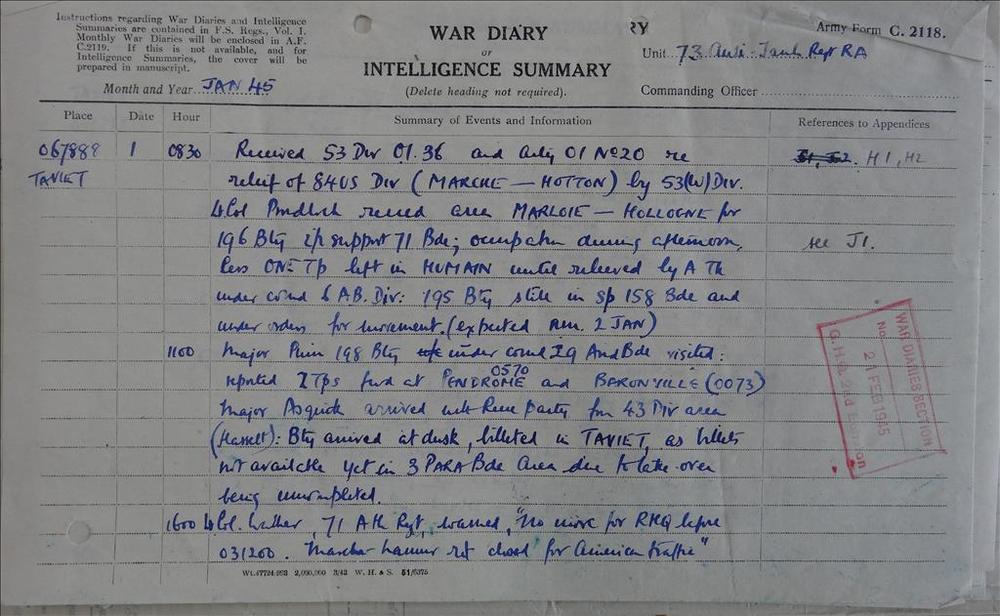 Instructions regarding War Diaries and Intelligence
Summaries are contained in F.S. Regs., Vol. I.
Monthly War Diaries will be enclosed in A.F.
C.2119. If this is not available, and for
Intelligence Summaries, the cover will be
prepared in manuscript.
Month and Year JAN 45
WAR DIARY
or
INTELLIGENCE SUMMARY
(Delete heading not required).
RY
Army Form C. 2118.
Unit 73 Anti-Tank Regt RA
Commanding Officer
Place Date Hour Summary of Events and Information References to Appendices
067888 1 0830 Received 53 Div OI.36 and OI No20 re H1, H2
TAVIET relief of 84 US Div (MARCHE — HOTTON) by 53(W) Div.
Lt Col recced area MARLOIE — HOLLOGNE for
196 Bty i/c support 71 Bde; occupation during afternoon, see J1.
less ONE Tp left in HUMAIN until relieved by A Tk
under comd 6 A.B. Div: 195 Bty still in sp 158 Bde and
under orders for movement. (expected 2 JAN)
1100 Major 198 Bty under comd 29 Armd Bde visited:
reported 2 Tps fwd at PENDROME 0570 and BARONVILLE (0073)
Major Asquith arrived with Recce party from 43 Div area
(Hasselt): Bty arrived at dusk, billeted in TAVIET, as billets
not available yet in 3 PARA Bde area due to take over
being uncompleted.
1600 Lt Col. 71 A Tk Regt, warned, "No move for RHQ before
031200. closed for American traffic"
Wt.47724-993 2,000,000 3/43 W. H. & S. 51/6375
WAR DIARIES SECTION
No.
21 FEB 1945
G.H.Q. 2nd Echelon